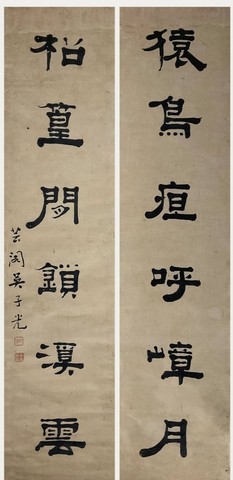 猿鳥呼嶂月
篁閒鎖溪雲
芸閣吳子光